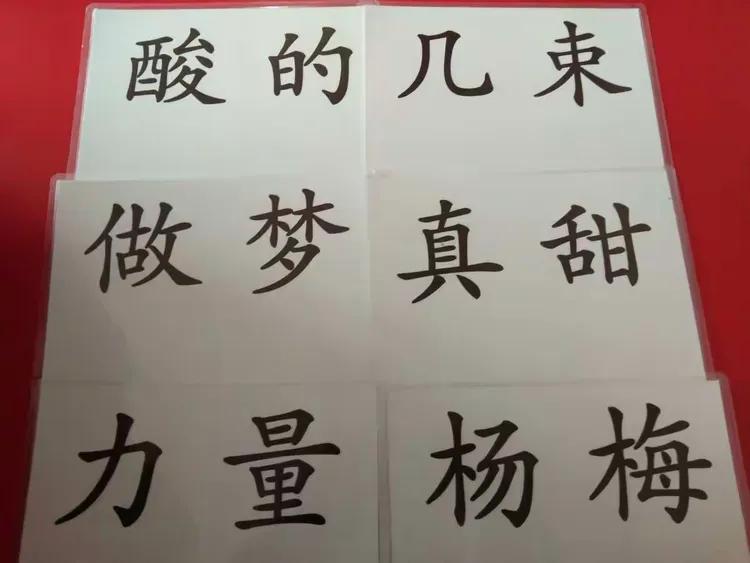 酸的 几束
做梦 真甜
力量 杨梅